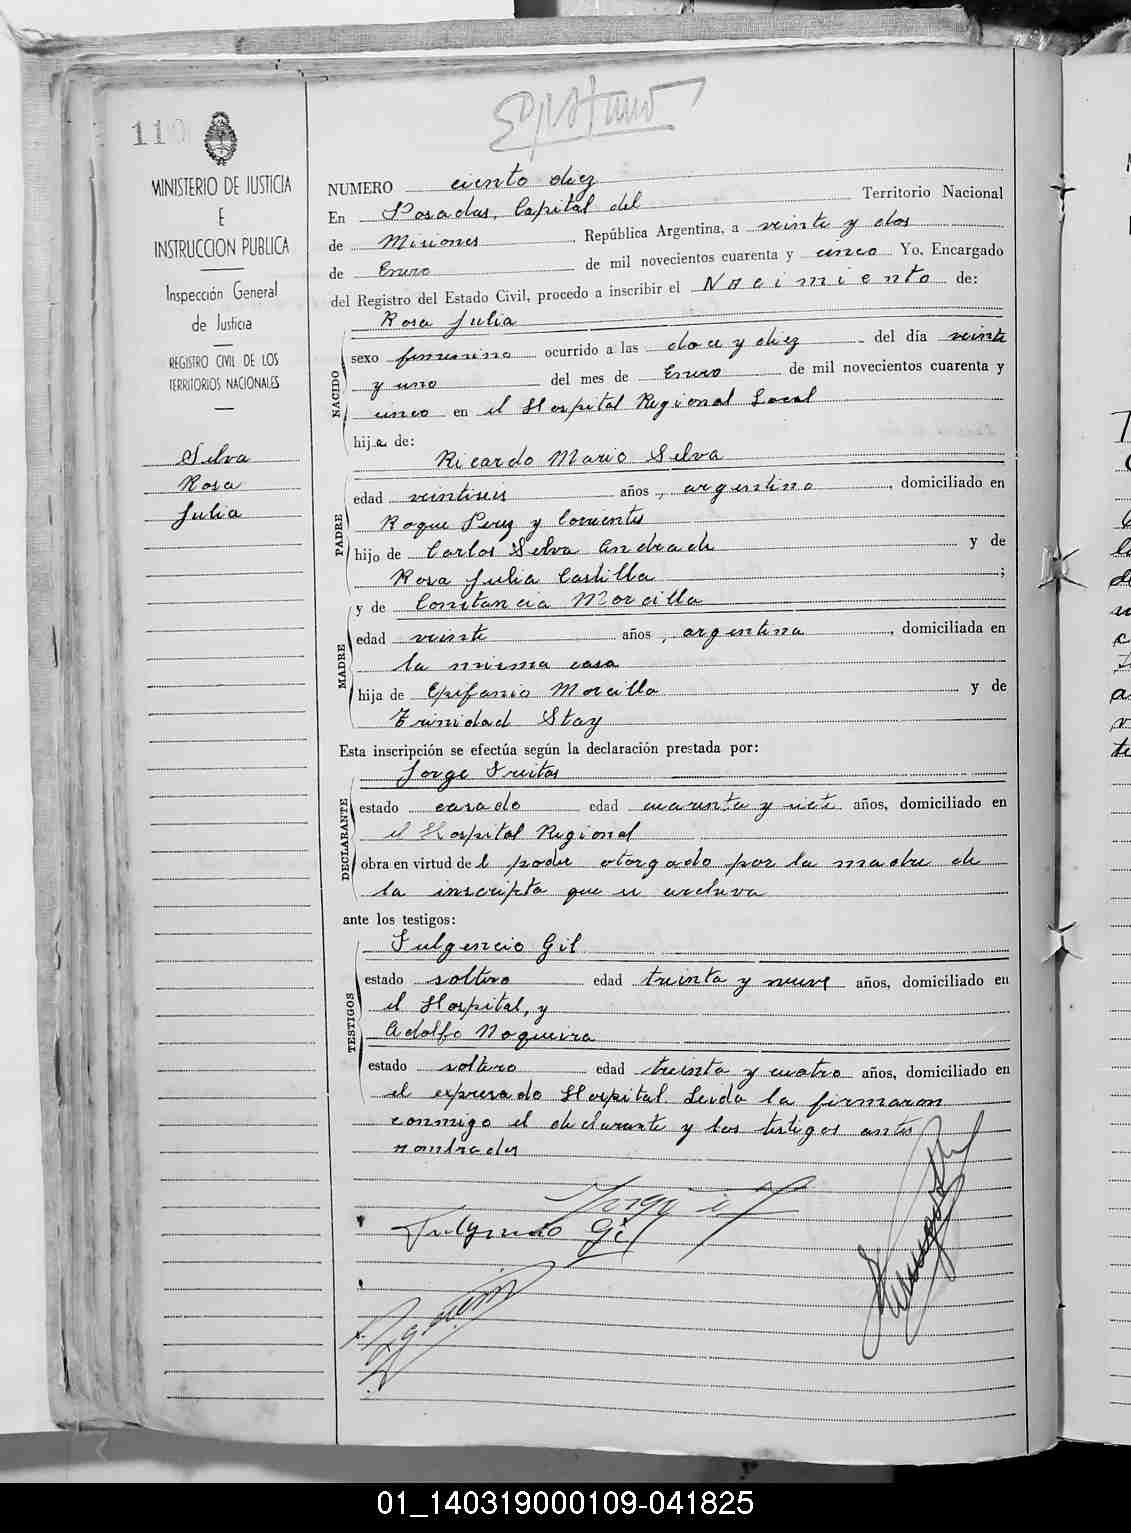 110
MINISTERIO DE JUSTICIA
E
INSTRUCCION PUBLICA
Inspección General
de Justicia
REGISTRO CIVIL DE LOS
TERRITORIOS NACIONALES
Silva
Rosa
Julia
NUMERO ciento diez
En Posadas, Capital del Territorio Nacional
de Misiones, República Argentina, a veinte y dos
de Enero de mil novecientos cuarenta y cinco Yo, Encargado
del Registro del Estado Civil, procedo a inscribir el Nacimiento de:
Rosa Julia
NACIDO
sexo femenino ocurrido a las doce y diez del día veinte
y uno del mes de Enero de mil novecientos cuarenta y
cinco en el Hospital Regional Local
hija de:
Ricardo Mario Silva
PADRE
edad veintiseis años, argentino, domiciliado en
Roque Perez y Corrientes
hijo de Carlos Silva Andrade y de
Rosa Julia Castilla;
y de Constancia Morcilla
MADRE
edad veinte años, argentina, domiciliada en
la misma casa
hija de Epifanio Morcilla y de
Trinidad Stay
Esta inscripción se efectúa según la declaración prestada por:
Jorge Freitas
DECLARANTE
estado casado edad cuarenta y siete años, domiciliado en
el Hospital Regional
obra en virtud del poder otorgado por la madre de
la inscripta que se archiva
ante los testigos:
Fulgencio Gil
TESTIGOS
estado soltero edad treinta y nueve años, domiciliado en
el Hospital, y
Adolfo Nogueira
estado soltero edad treinta y cuatro años, domiciliado en
el expresado Hospital. Leida la firmaron
conmigo el declarante y los testigos antes
nombrados
Fulgencio Gil
01_140319000109-041825